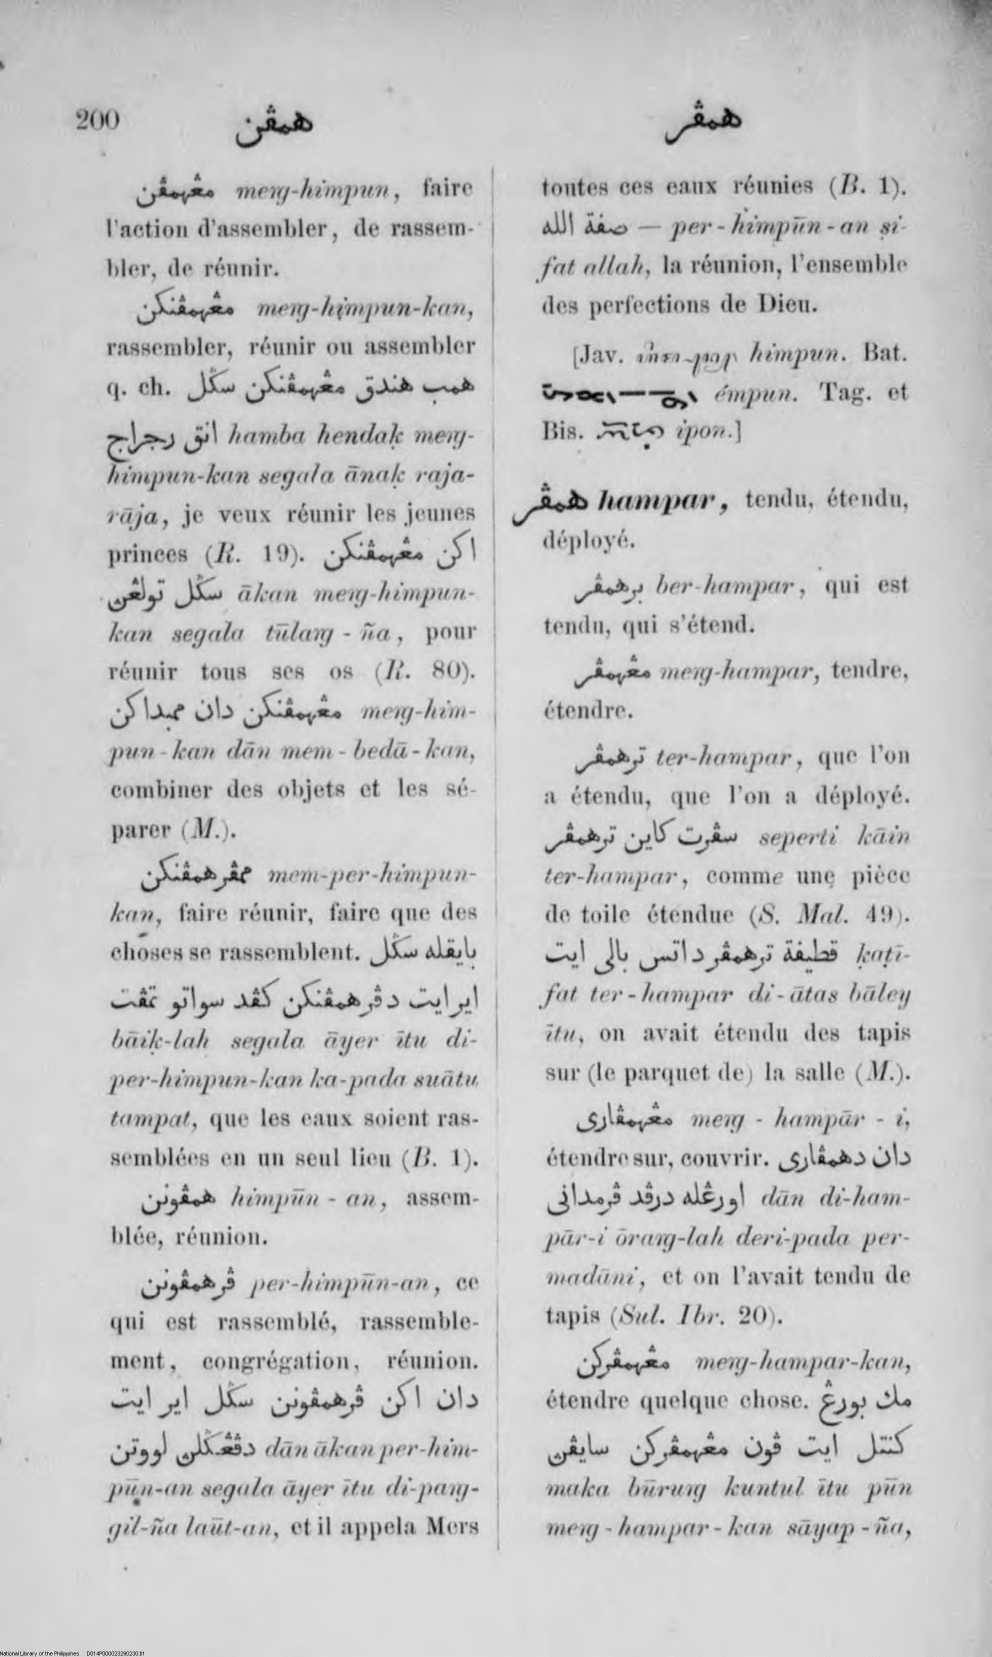 200
همڤن
همڤر
مڠهمڤن meng-himpun, faire
l'action d'assembler, de rassem-
bler, de réunir.
مڠهمڤنكن meng-himpun-kan,
rassembler, réunir ou assembler
q. ch. همب هندق مڠهمڤنكن سݢل
انق رجراج hamba hendaḳ meng-
himpun-kan segala ānaḳ raja-
rāja, je veux réunir les jeunes
princes (R. 19). اكن مڠهمڤنكن
سݢل تولڠن ākan meng-himpun-
kan segala tūlang - ña, pour
réunir tous ses os (R. 80).
مڠهمڤنكن دان ممبداكن meng-him-
pun-kan dān mem-bedā-kan,
combiner des objets et les sé-
parer (M.).
ممڤرهمڤنكن mem-per-himpun-
kan, faire réunir, faire que des
choses se rassemblent. بايقله سݢل
ايرايت دڤرهمڤنكن كڤد سواتو تمڤت
bāiḳ-lah segala āyer ītu di-
per-himpun-kan ka-pada suātu
tampat, que les eaux soient ras-
semblées en un seul lieu (B. 1).
همڤونن himpūn - an, assem-
blée, réunion.
ڤرهمڤونن per-himpūn-an, ce
qui est rassemblé, rassemble-
ment, congrégation, réunion.
دان اكن ڤرهمڤونن سݢل اير ايت
دڤڠݢلن لووتن dān ākan per-him-
pūn-an segala āyer ītu di-pang-
gil-ña laūt-an, et il appela Mers
toutes ces eaux réunies (B. 1).
صفة الله — per-himpūn-an ṣi-
fat allah, la réunion, l'ensemble
des perfections de Dieu.
[Jav. himpun. Bat.
émpun. Tag. et
Bis. ipon.]
همڤر hampar, tendu, étendu,
déployé.
برهمڤر ber-hampar, qui est
tendu, qui s'étend.
مڠهمڤر meng-hampar, tendre,
étendre.
ترهمڤر ter-hampar, que l'on
a étendu, que l'on a déployé.
سڤرت كاين ترهمڤر seperti kāin
ter-hampar, comme une pièce
de toile étendue (S. Mal. 49).
قطيفة ترهمڤر داتس بالى ايت ḳaṭī-
fat ter-hampar di-ātas bāley
ītu, on avait étendu des tapis
sur (le parquet de) la salle (M.).
مڠهمڤارى meng - hampār - i,
étendre sur, couvrir. دان دهمڤارى
اورڠله درڤد ڤرمدانى dān di-ham-
pār-i ōrang-lah deri-pada per-
madāni, et on l'avait tendu de
tapis (Sul. Ibr. 20).
مڠهمڤركن meng-hampar-kan,
étendre quelque chose. مك بورڠ
كنتل ايت ڤون مڠهمڤركن سايڤن
maka būrung kuntul ītu pūn
meng-hampar-kan sāyap-ña,
National Library of the Philippines